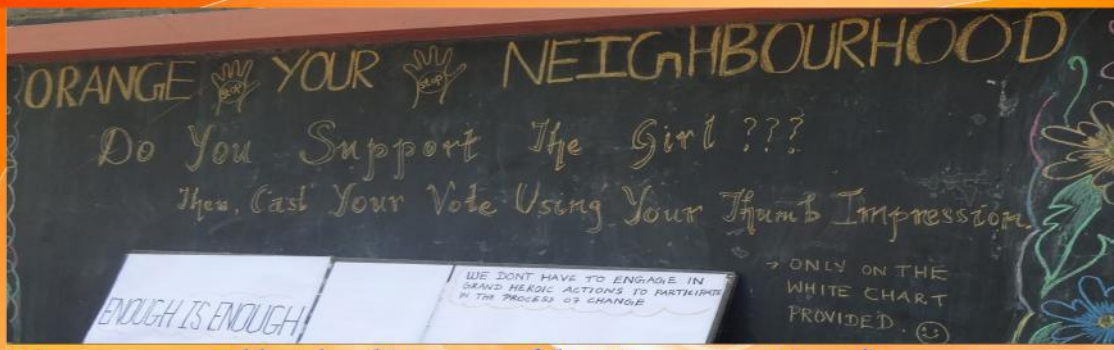 ORANGE STOP YOUR STOP NEIGHBOURHOOD
Do You Support The Girl ???
Then, Cast Your Vote Using Your Thumb Impression.
→ ONLY ON THE
WHITE CHART
PROVIDED. ☺
ENOUGH IS ENOUGH
WE DONT HAVE TO ENGAGE IN
GRAND HEROIC ACTIONS TO PARTICIPATE
IN THE PROCESS OF CHANGE